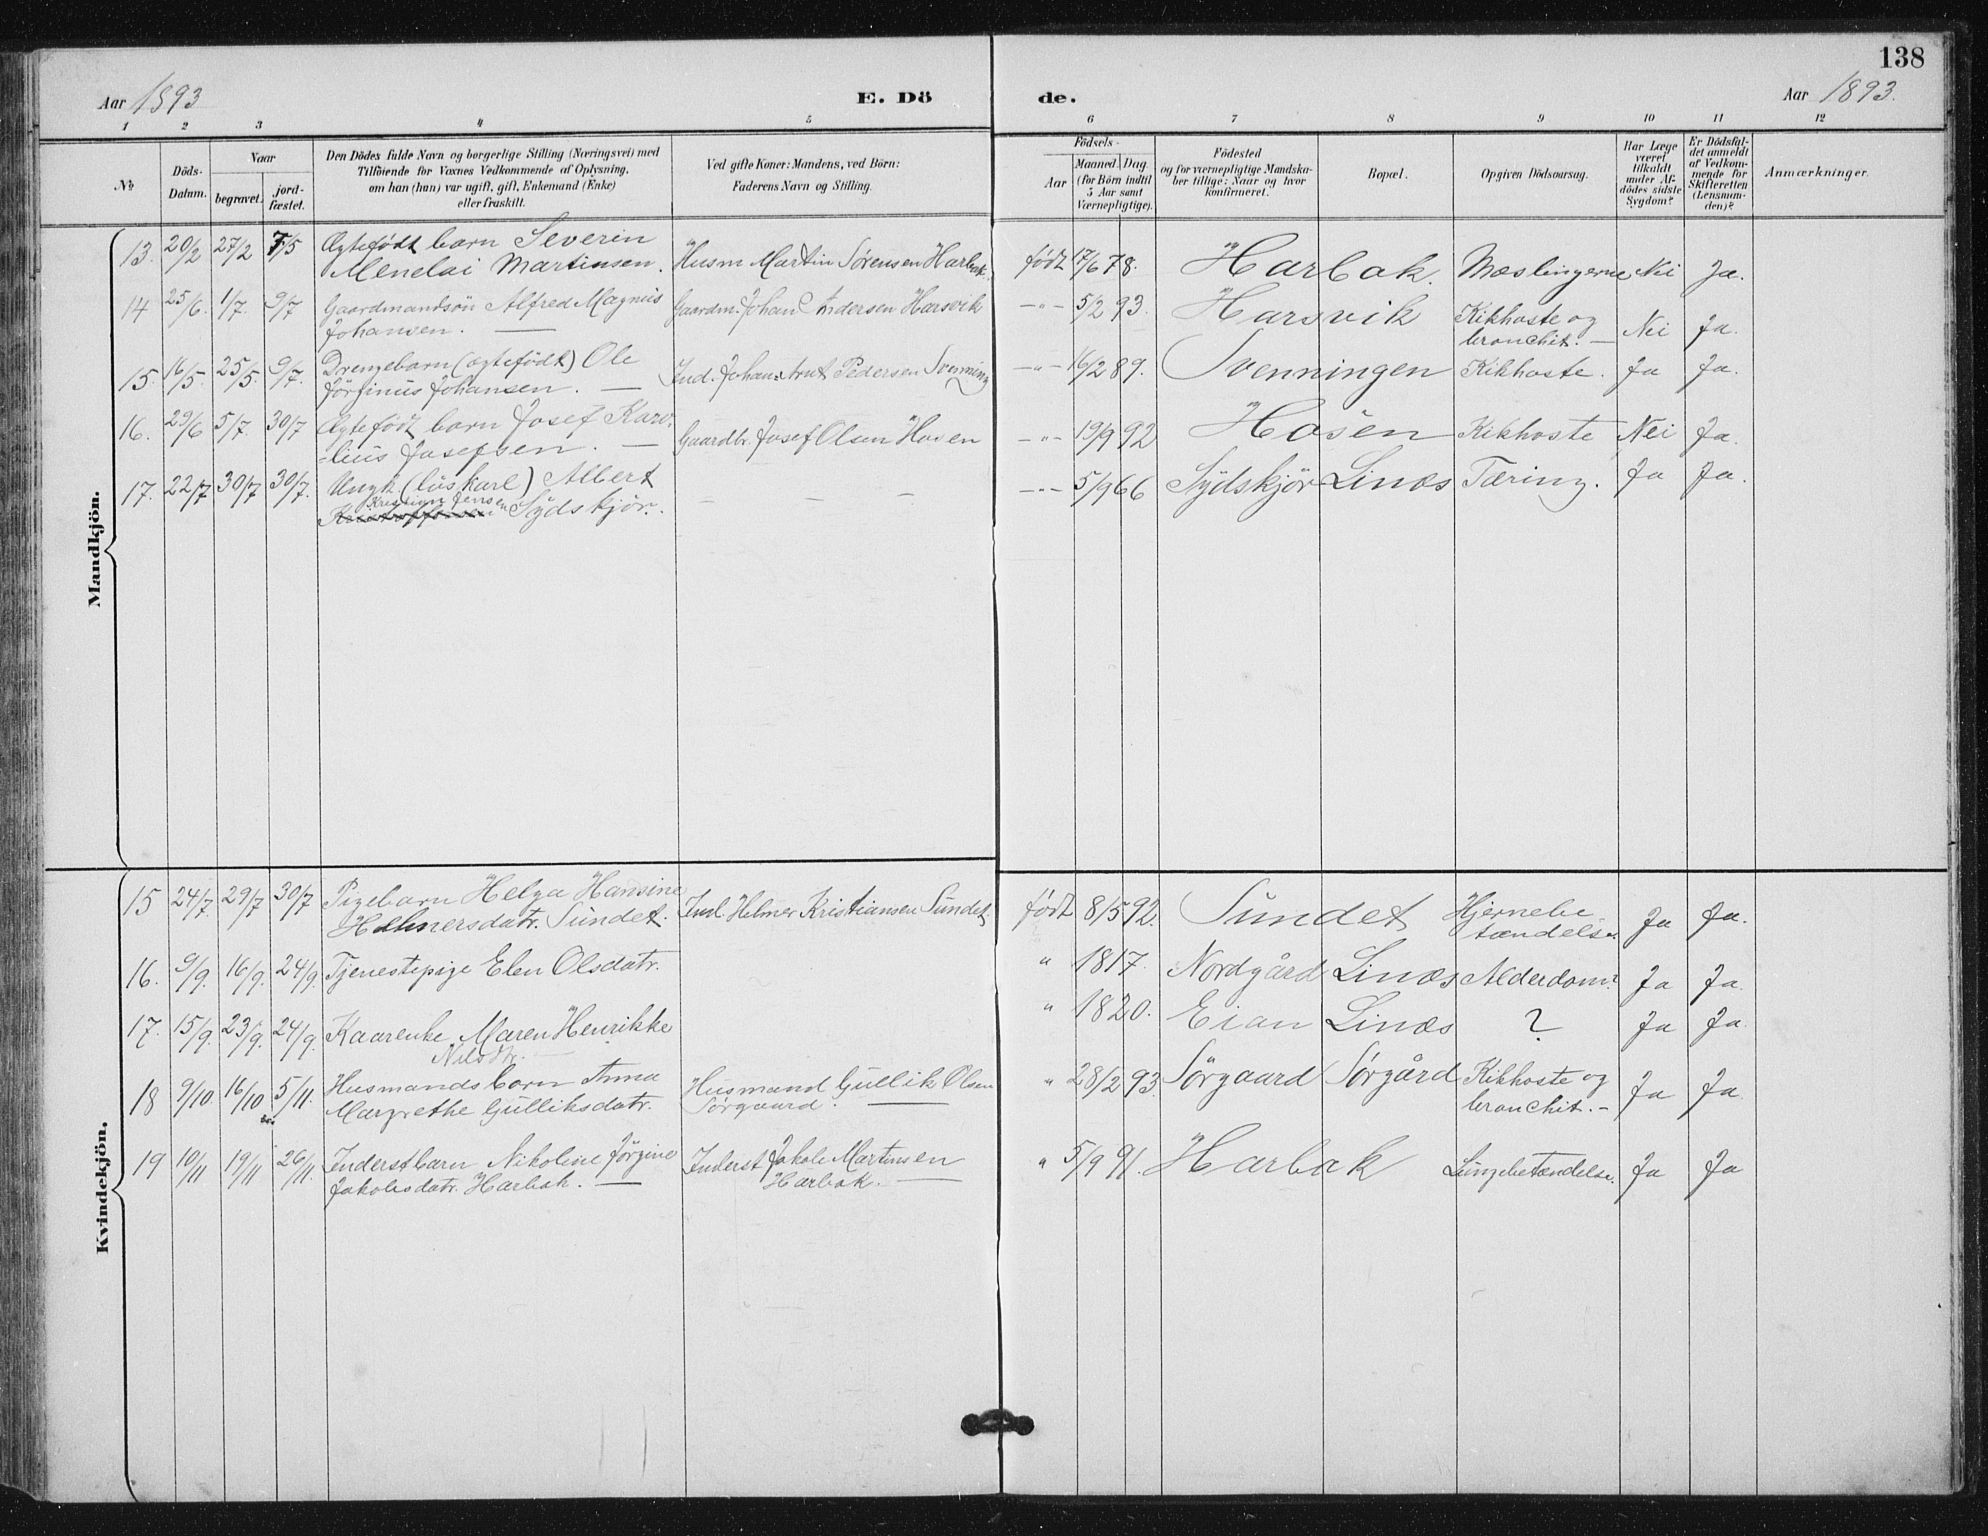 138
Aar 1893 E. Dö de. Aar 1893.
1 2 3 4 5 6 7 8 9 10 11 12
№
Döds-
Datum.
Naar
begravet.
jord-
fæstet.
Den Dödes fulde Navn og borgerlige Stilling (Næringsvei) med
Tilföiende for Voxnes Vedkommende af Oplysning,
om han (hun) var ugift, gift, Enkemand (Enke)
eller fraskilt.
Ved gifte Koner: Mandens, ved Börn:
Faderens Navn og Stilling.
Födsels-
Aar
Maaned. Dag.
(for Börn indtil
5 Aar samt
Værnepligtige).
Födested
og for værnepligtige Mandska-
ber tillige: Naar og hvor
konfirmeret.
Bopæl.
Opgiven Dödsaarsag.
Har Læge
været
tilkaldt
under Af-
dödes sidste
Sygdom?
Er Dödsfal-
det anmeldt
af Vedkom-
mende for
Skifteretten
(Lensman-
den)?
Anmærkninger.
Mandkjön.
13. 20/2 27/2 7/5 Ægtefødt barn Severin
Menelai Martinsen. Husm Martin Sørensen Harbak. født 17/6 78. Harbak. Mæslingerne Nei Ja.
14 25/6. 1/7. 9/7 Gaardmandsön Alfred Magnus
Johansen. — Gaardm. Johan Andersen Harsvik —"— 5/2 93. Harsvik Kikhoste og
bronchit. — Nei Ja.
15. 16/5. 25/5. 9/7. Drengebarn (ægtefødt) Ole
Jörginus Johansen. — Ind. Johan Pedersen Svenning —"— 16/2 89. Svenningen Kikhoste. Ja Ja.
16. 29/6 5/7. 30/7 Ægtefödt barn Josef Karo-
lius Josefsen. — Gaardbr. Josef Olsen Hosen —"— 19/9 92 Hosen Kikhoste Nei Ja.
17. 22/7 30/7 30/7. Ungk (löskarl) Albert
Kristian Jensen
Sydskjör. — — — —"— 5/9 66 Sydskjör Linæs Tæring. Ja Ja.
Kvindekjön.
15 24/7 29/7 30/7 Pigebarn Helga Hansine
Helmersdatr. Sundet. Ind. Helmer Kristiansen Sundet. født 8/5 92. Sundet Hjernebe-
tændelse. Ja Ja.
16. 9/9. 16/9. 24/9. Tjenestepige Elen Olsdatr. " 1817. Nordgård Linæs Alderdom? Ja Ja.
17. 15/9. 23/9. 24/9. Kaarenke Maren Henrikke
Nilsdtr. — " 1820. Eian Linæs ? Ja Ja.
18 9/10. 16/10 5/11. Husmandsbarn Anna
Margrethe Gulliksdatr. Husmand Gullik Olsen
Sørgaard. — " 28/2 93. Sörgaard Sørgård Kikhoste og
bronchit. — Ja Ja.
19 10/11 19/11 26/11. Inderstbarn Nikoline Jörgine
Jakobsdatr. Harbak. — Inderst Jakob Martinsen
Harbak. — " 5/9 91. Harbak Lungebetændelse. Ja Ja